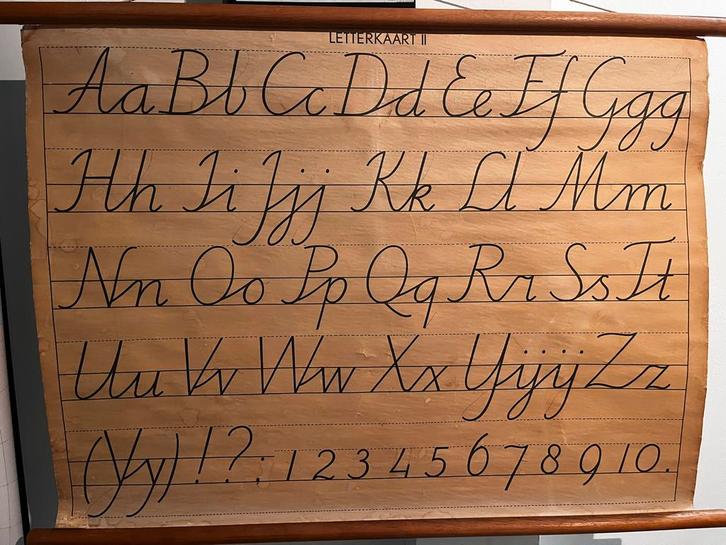 LETTERKAART II
Aa Bb Cc Dd Ee Ff Ggg
Hh Ii Jjj Kk Ll Mm
Nn Oo Pp Qq Rr Ss Tt
Uu Vv Ww Xx IJijij Zz
(Yy) ! ? ; 1 2 3 4 5 6 7 8 9 10.